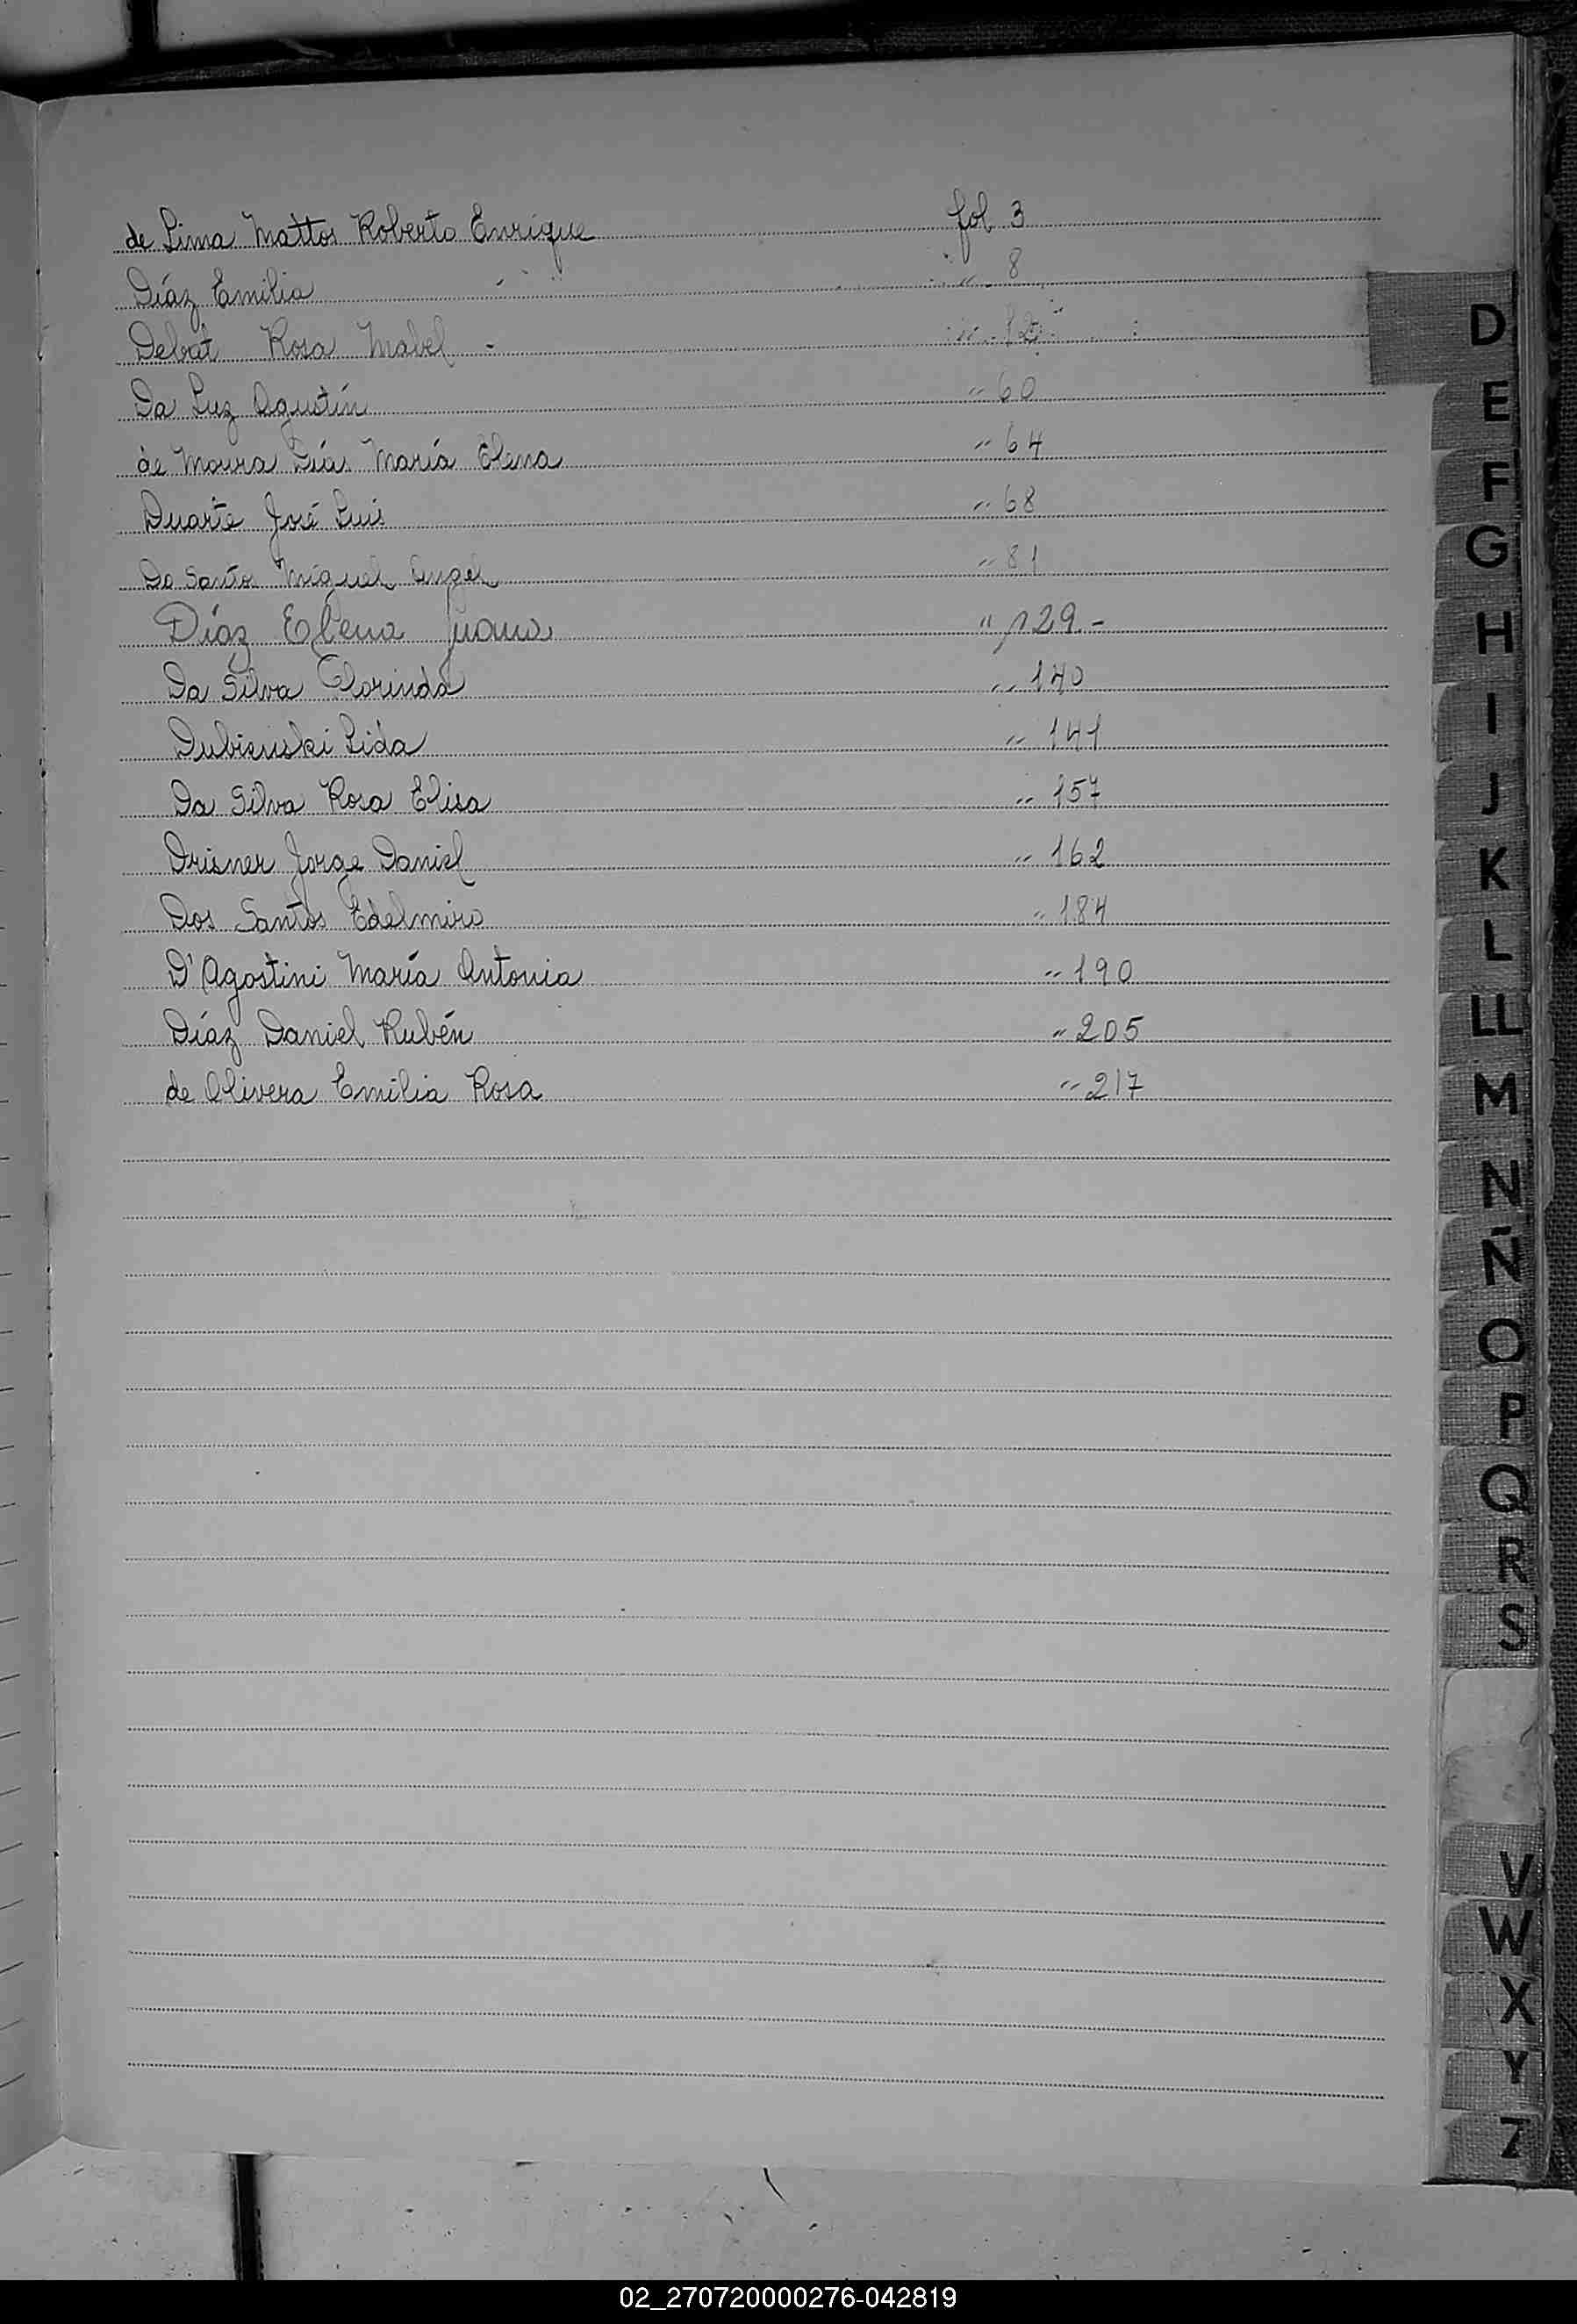 de Lima Mattos Roberto Enrique fol 3
Díaz Emilia " 8
Debat Rosa Mabel - " 12
Da Luz Agustín " 60
de Moura Días María Elena " 64
Duarte José Luis " 68
Do Santos Miguel Angel " 81
Díaz Elena Juana " 129.-
Da Silva Clorinda " 140
Dubienski Lida " 141
Da Silva Rosa Elisa " 157
Drisner Jorge Daniel " 162
Dos Santos Edelmiro " 184
D'Agostini María Antonia " 190
Díaz Daniel Rubén " 205
de Olivera Emilia Rosa " 217
D
E
F
G
H
I
J
K
L
LL
M
N
Ñ
O
P
Q
R
S
V
W
X
Y
Z
02_270720000276-042819